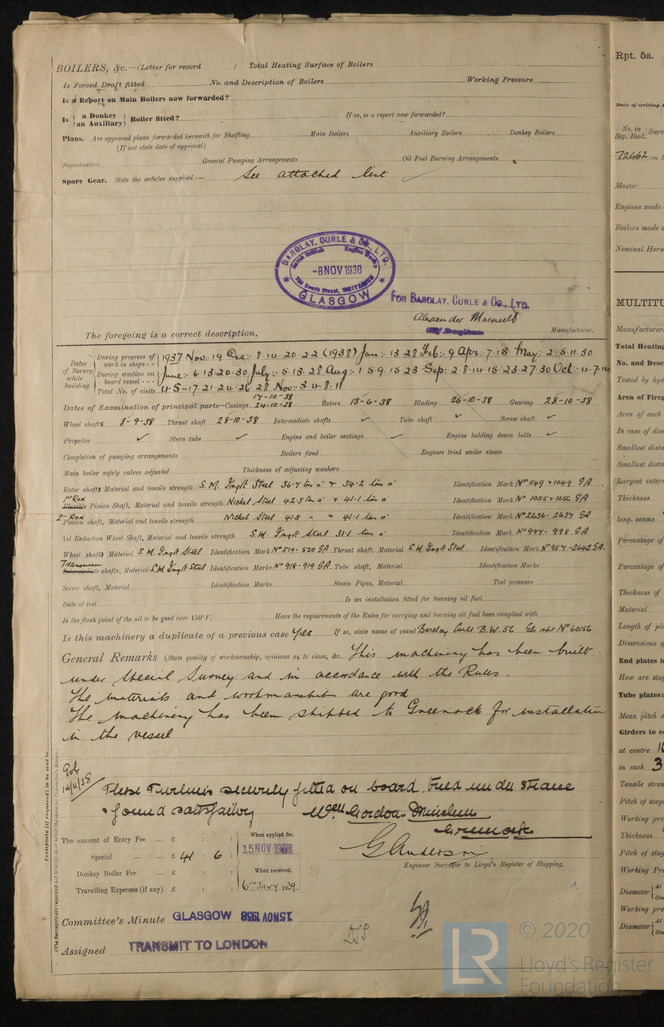 BOILERS, &c.—(Letter for record ) Total Heating Surface of Boilers
Is Forced Draft fitted No. and Description of Boilers Working Pressure
Is a Report on Main Boilers now forwarded?
Is {a Donkey / an Auxiliary} Boiler fitted? If so, is a report now forwarded?
Plans. Are approved plans forwarded herewith for Shafting Main Boilers Auxiliary Boilers Donkey Boilers
(If not state date of approval)
Superheaters General Pumping Arrangements Oil Fuel Burning Arrangements
Spare Gear. State the articles supplied:— See attached list
BARCLAY, CURLE & CO., LTD.
North British Engine Works
-8 NOV 1938
South Street, Whiteinch
GLASGOW
FOR BARCLAY, CURLE & CO., LTD.
Alexander
The foregoing is a correct description, Manufacturer.
Dates of Survey while building
During progress of work in shops - - 1937 Nov: 19 Dec: 8.14.20.22 (1938) Jan: 13.28 Feb: 9 Apr: 7.15 May: 2.5.11.30
During erection on board vessel - - - June: 6.13.20.30 July: 5.13.28 Aug: 1.5.9.15.23 Sep: 2.8.14.15.23.27.30 Oct: 4.7.14
Total No. of visits 17.21.24.26.28 Nov: 3.4.8.11
17-10-38
Dates of Examination of principal parts—Casings 24-10-38 Rotors 13-6-38 Blading 26-10-38 Gearing 28-10-38
Wheel shafts 8-9-38 Thrust shaft 28-10-38 Intermediate shafts ✓ Tube shaft ✓ Screw shaft ✓
Propeller ✓ Stern tube ✓ Engine and boiler seatings ✓ Engine holding down bolts ✓
Completion of pumping arrangements Boilers fixed Engines tried under steam
Main boiler safety valves adjusted Thickness of adjusting washers
Rotor shafts Material and tensile strength S.M. Ingot Steel 36.7 ton □" & 34.2 ton □" Identification Mark Nº 549 & 1049 GA
1st Red Pinion Shaft, Material and tensile strength Nickel Steel 42.3 ton □" & 41.1 ton □" Identification Mark Nº 1055-1056 GA
2nd Red Pinion shaft, Material and tensile strength Nickel Steel 41.3 " & 41.1 ton □" Identification Mark Nº 2636-2637 GA
1st Reduction Wheel Shaft, Material and tensile strength S.M. Ingot Steel 31.1 ton □" Identification Mark Nº 997-998 GA
Wheel shafts Material S M Ingot Steel Identification Mark Nº 519-520 GA Thrust shaft, Material S.M. Ingot Steel Identification Mark Nº 957-2642 GA.
shafts, Material S M Ingot Steel Identification Marks Nº 918-919 GA Tube shaft, Material Identification Marks
Screw shaft, Material Identification Marks Steam Pipes, Material Test pressure
Date of test Is an installation fitted for burning oil fuel
Is the flash point of the oil to be used over 150°F. Have the requirements of the Rules for carrying and burning oil fuel been complied with
Is this machinery a duplicate of a previous case Yes If so, state name of vessel Barclay Curle B.W. 56 Gls rpt Nº 60156
General Remarks (State quality of workmanship, opinions as to class, &c. This machinery has been built
under Special Survey and in accordance with the Rules.
The materials and workmanship are good
The machinery has been shipped to Greenock for installation
in the vessel
14/11/38
These Turbines securely fitted on board, tried under steam
& found satisfactory Wm Gordon
Greenock
The amount of Entry Fee ... £ : : When applied for,
Special ... ... £ 41 : 6 : 15 NOV 1938
Donkey Boiler Fee ... £ : : When received,
Travelling Expenses (if any) £ : : 6th Jany 1939
G Anderson
Engineer Surveyor to Lloyd's Register of Shipping.
Committee's Minute GLASGOW 15 NOV 1938
Assigned TRANSMIT TO LONDON
Certificate (if required) to be sent to
Rpt. 5a.
Date of writing
No. in Reg. Book. Surv
72462 on
Master
Engines made
Boilers made
Nominal Hors
MULTITU
Manufacturer
Total Heating
No. and Desc
Tested by hyd
Area of Firegr
Area of each
In case of dan
Smallest dista
Smallest dista
Largest inter
Thickness
long. seams
Percentage of
Percentage of
Thickness of
Material
Length of pl
Dimensions o
End plates i
How are stay
Tube plates:
Mean pitch o
Girders to c
at centre
in each 3
Tensile stren
Pitch of stay
Working pre
Thickness
Pitch of stay
Working Pr
Diameter {At / Ov
Working pre
Diameter {At / Ov
LR
© 2020
Lloyd's Register
Foundation